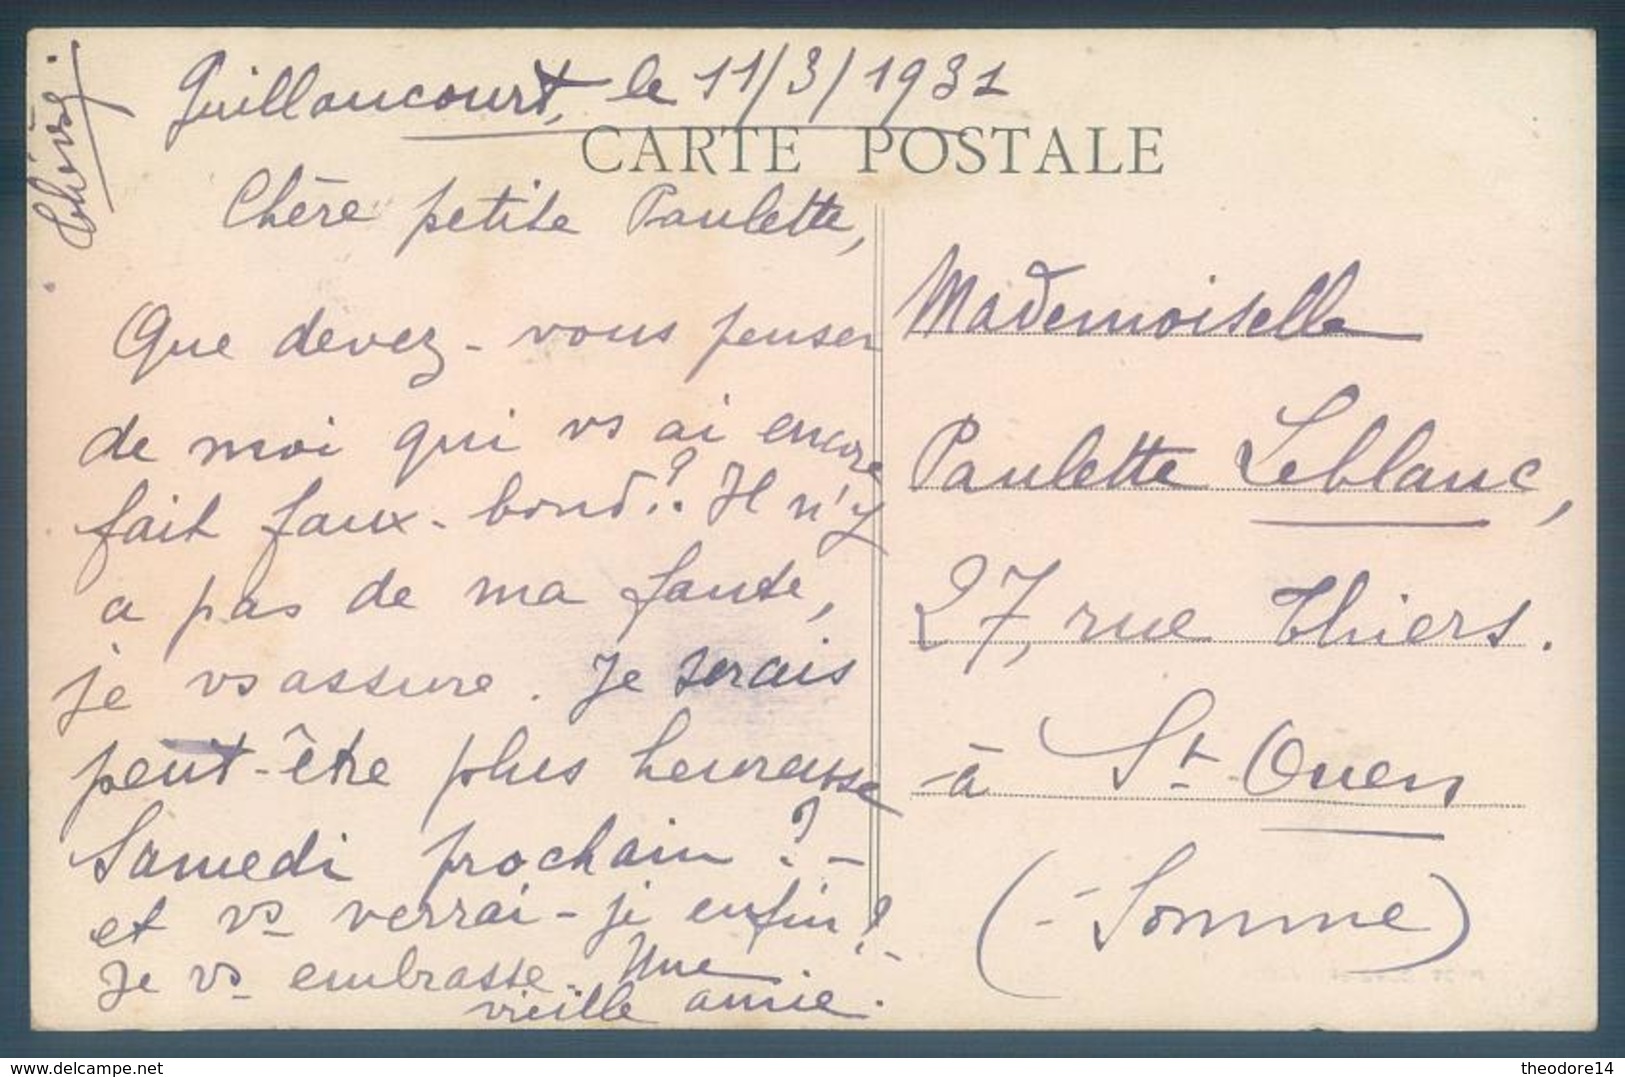 Guillaucourt, le 11/3/1931
CARTE POSTALE
Chère petite Paulette,
Que devez-vous penser
de moi qui vs ai encore
fait faux-bond?. Il n'y
a pas de ma faute,
je vs assure. Je serais
peut-être plus heureuse
Samedi prochain ? -
et vs verrai-je enfin? -
Je vs embrasse. Une
vieille amie.
Mademoiselle
Paulette Leblanc,
27, rue Thiers.
à St-Ouen
(-Somme)
www.delcampe.net
theodore14